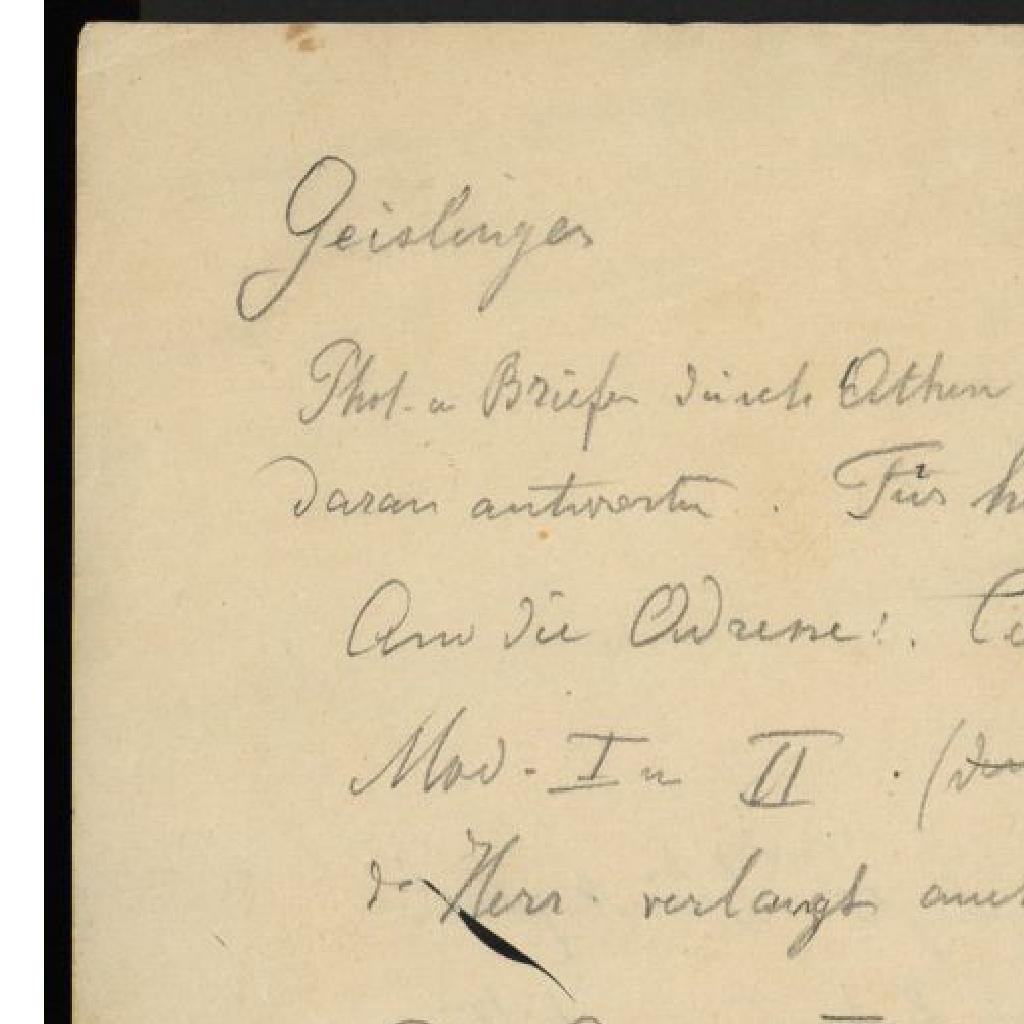 Geislinger
Phot. u Briefe durch Athen
daran antworten. Für
Am die Adresse:.
Mod. I u II . (
d. Herr verlangt auch